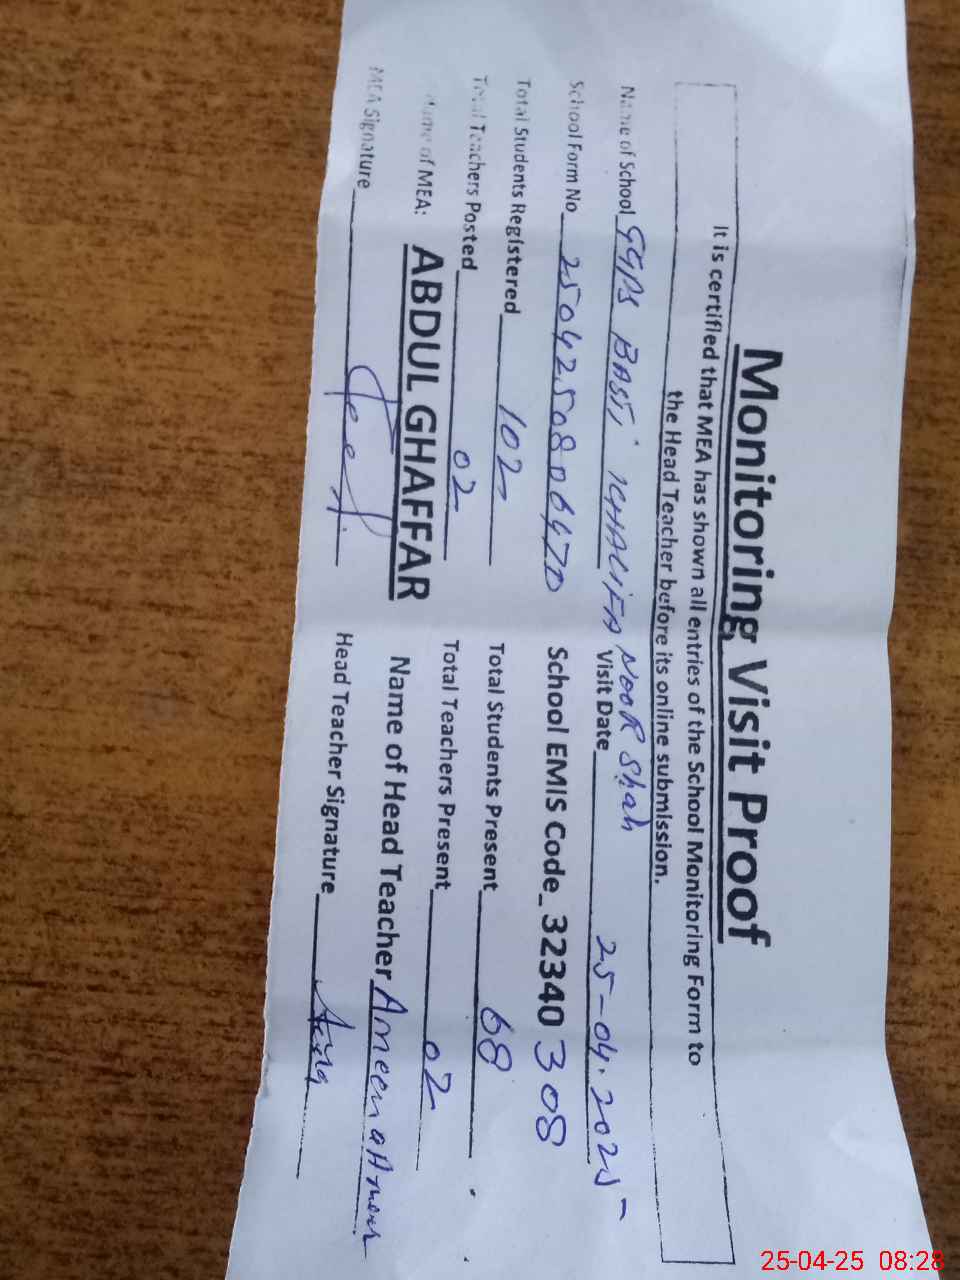 Monitoring Visit Proof
It is certified that MEA has shown all entries of the School Monitoring Form to
the Head Teacher before its online submission.
Name of School GGPS BASTI KHALIFA NOOR Shah Visit Date 25-04-2025
School Form No 2504250806470 School EMIS Code_ 32340 308
Total Students Registered 102 Total Students Present 68
Total Teachers Posted 02 Total Teachers Present 02
Name of MEA: ABDUL GHAFFAR Name of Head Teacher Ameena
MEA Signature Head Teacher Signature
25-04-25 08:28